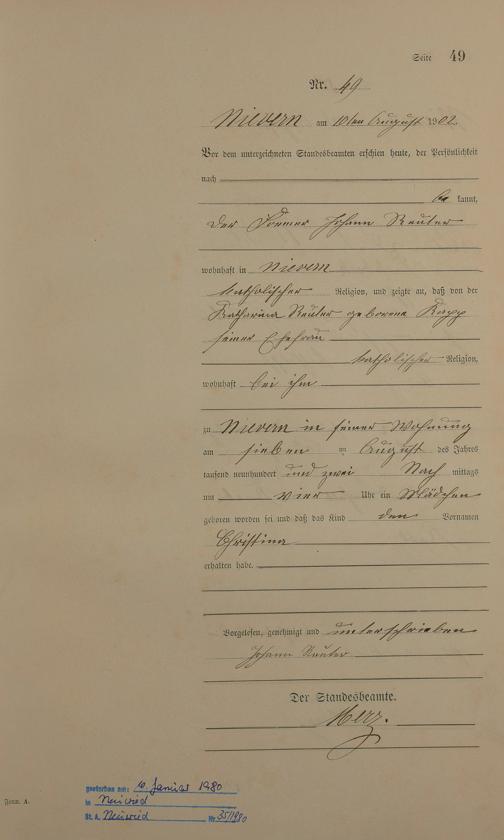 Seite 49
Nr. 49
Nievern am 10ten August 1902
Vor dem unterzeichneten Standesbeamten erschien heute, der Persönlichkeit
nach
be kannt,
der Former Johann Reuter
wohnhaft in Nievern
katholischer Religion, und zeigte an, daß von der
Katharina Reuter geborene Kapp
seiner Ehefrau
katholischer Religion,
wohnhaft bei ihm
zu Nievern in seiner Wohnung
am sieben ten August des Jahres
tausend neunhundert und zwei Nach mittags
um vier Uhr ein Mädchen
geboren worden sei und daß das Kind den Vornamen
Christina
erhalten habe.
Vorgelesen, genehmigt und unterschrieben
Johann Reuter
Der Standesbeamte.
Merz.
gestorben am: 6. Januar 1980
in Neuwied
St. A. Neuwied Nr. 35/1980
Form. A.